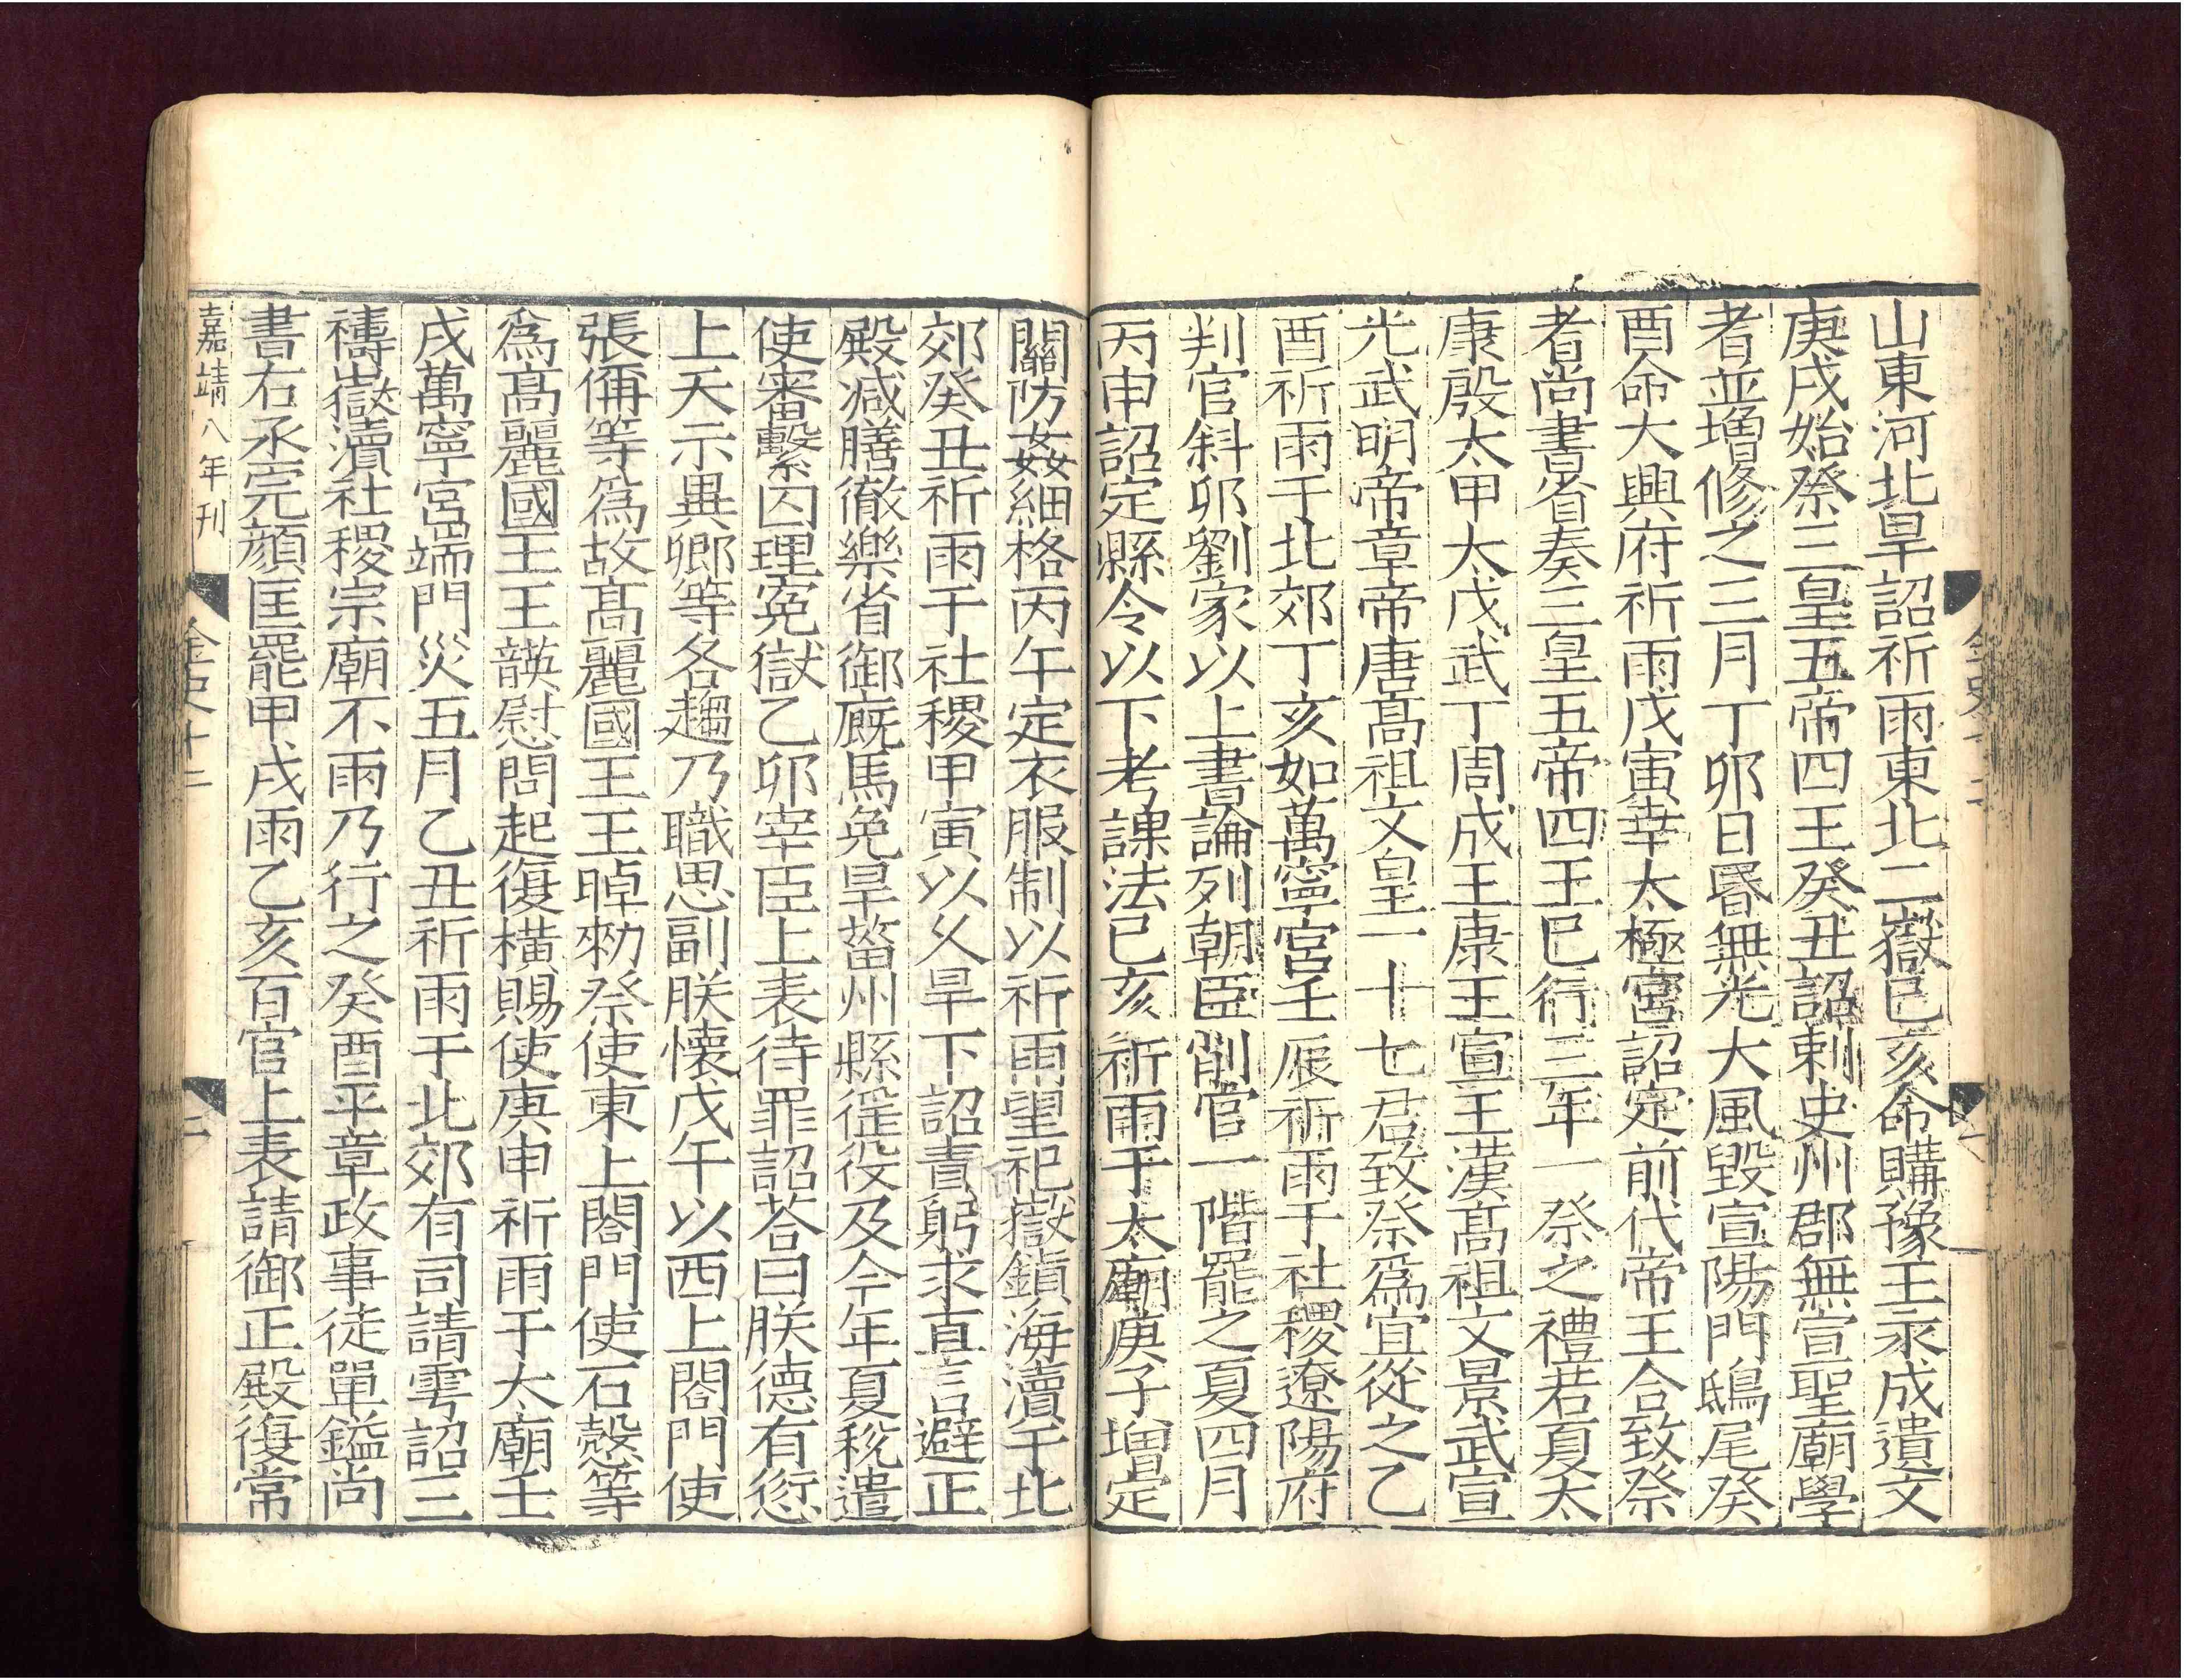 山東河北旱詔祈雨東北二嶽己亥命購豫王永成遺文
庚戌始祭三皇五帝四王癸丑詔刺史州郡無宣聖廟學
者並增修之三月丁卯日昬無光大風毀宣陽門鴟尾癸
酉命大興府祈雨戊寅幸太極宮詔定前代帝王合致祭
者尚書省奏三皇五帝四王巳行三年一祭之禮若夏太
康殷太甲太戊武丁周成王康王宣王漢高祖文景武宣
光武明帝章帝唐高祖文皇一十七君致祭爲宜從之乙
酉祈雨于北郊丁亥如萬寧宮壬辰祈雨于社稷遼陽府
判官斜卯劉家以上書論列朝臣削官一階罷之夏四月
丙申詔定縣令以下考課法己亥祈雨于太廟庚子增定
關防姦細格丙午定衣服制以祈雨望祀嶽鎮海瀆于北
郊癸丑祈雨于社稷甲寅以久旱下詔責躬求直言避正
殿減膳徹樂省御廐馬免旱菑州縣徭役及今年夏稅遣
使審繫囚理寃獄乙卯宰臣上表待罪詔荅曰朕德有愆
上天示異卿等各趨乃職思副朕懷戊午以西上閤門使
張偁等爲故高麗國王王晫勑祭使東上閤門使石慤等
爲高麗國王王韺慰問起復橫賜使庚申祈雨于太廟壬
戌萬寧宮端門災五月乙丑祈雨于北郊有司請雩詔三
禱嶽瀆社稷宗廟不雨乃行之癸酉平章政事徒單鎰尚
書右丞完顔匡罷甲戌雨乙亥百官上表請御正殿復常
嘉靖八年刊 金史十二 二